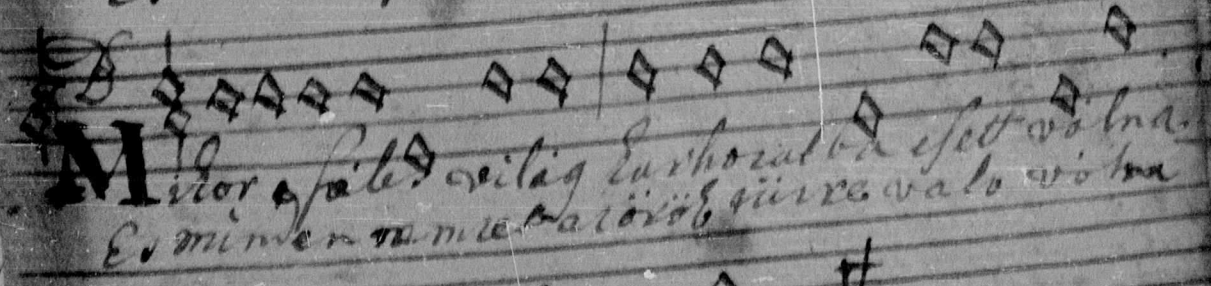 Mikor e széles világ kárhozatba esett vólna
Es minden nemzet a örök tüzre valo vólna